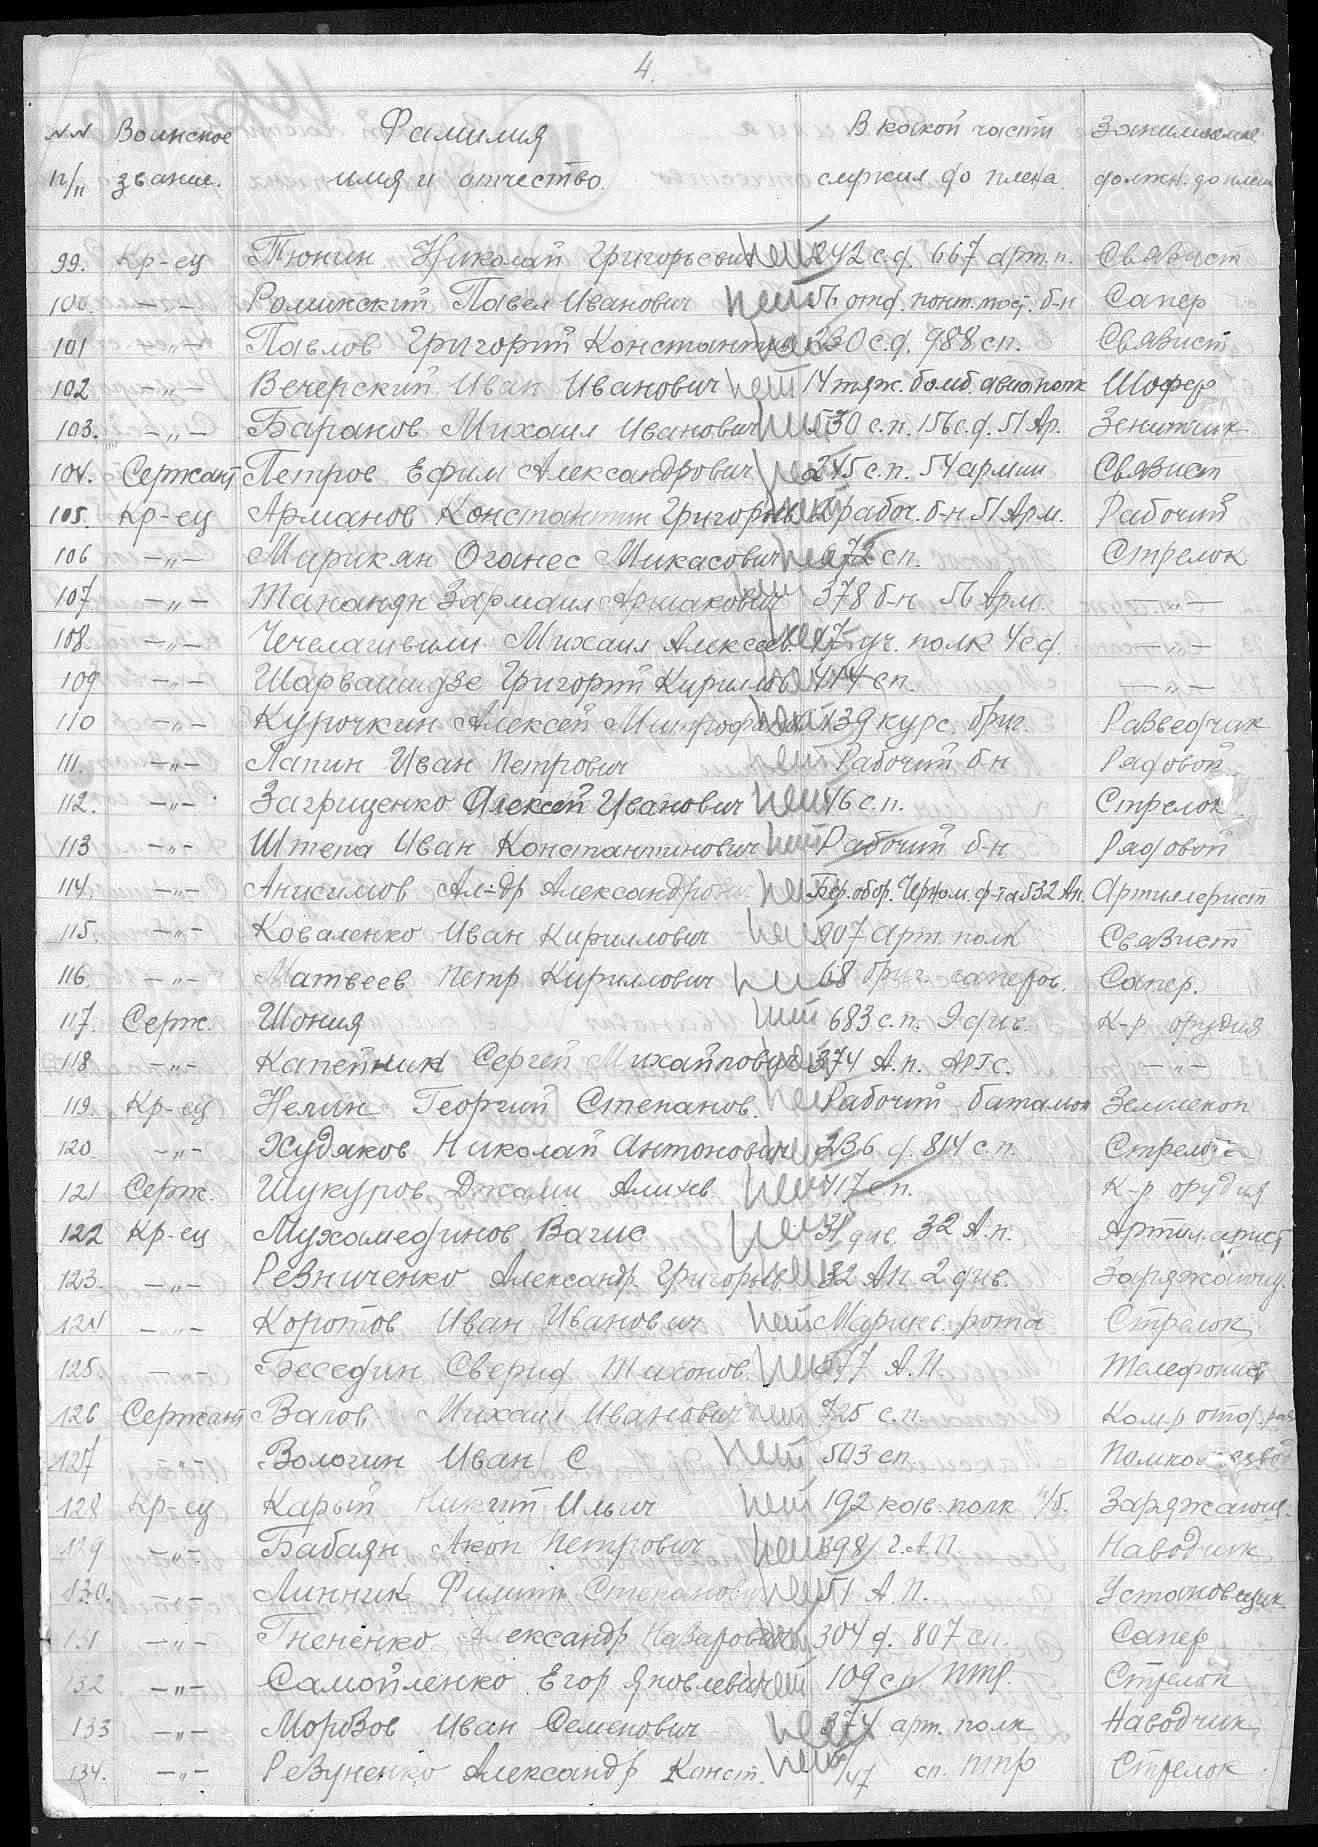 4.
NN Воинское Фамилия В какой части Занимаемые
п/п звание. имя и отчество. служил до плена должн. до плена
99. Кр-ец Тюнин Николай Григорьевич нет 242 с.д. 667 арт.п. Связист
100. —"— Ролинский Павел Иванович нет 56 отд. понт. мост. б-н Сапер
101 —"— Павлов Григорий Константин нет 230 с.д. 988 сп. Связист
102 —"— Вечерский Иван Иванович нет 14 тяж. бомб. авиаполк Шофер
103. —"— Баранов Михаил Иванович нет 530 с.п. 156 с.д. 51 Ар. Зенитчик
104. Сержант Петров Ефим Александрович нет 245 с.п. 54 армии Связист
105. Кр-ец Арманов Константин Григорьев нет рабоч. б-н 51 Арм. Рабочий
106 —"— Мирикян Оганес Микасович нет 672 сп. Стрелок
107 —"— Тананян Зармаил Аршакович нет 378 б-н 56 Арм. —"—
108. —"— Чечелашвили Михаил Алексеев. нет 17 уч. полк 4 сд. —"—
109 —"— Шарвашидзе Григорий Кириллов нет 414 сп. —"—
110 —"— Курочкин Алексей Митрофан нет 139 курс. бриг. Разведчик
111. —"— Лапин Иван Петрович нет Рабочий б-н Рядовой
112. —"— Загриценко Алексей Иванович нет 46 с.п. Стрелок
113 —"— Штепа Иван Константинович нет Рабочий б-н Рядовой
114. —"— Анисимов Ал-др Александрович нет Бер. обор. Черном. ф-та 532 Ап. Артиллерист
115. —"— Коваленко Иван Кириллович нет 907 арт. полк Связист
116. —"— Матвеев Петр Кириллович нет 68 бриг. саперов. Сапер.
117. Серж. Шония нет 683 с.п. 9 див. К-р орудия
118 —"— Капейник Сергей Михайлович нет 374 А.п. АРГС. —"—
119. Кр-ец Нелин Георгий Степанов. нет Рабочий батальон Землекоп
120 —"— Худяков Николай Антонович нет 236 д. 814 с.п. Стрелок
121 Серж. Шукуров Джали Алиев нет 417 с.п. К-р орудия
122 Кр-ец Мухамединов Вагис нет 31 див. 32 А.п. Артиллерист
123. —"— Резниченко Александр Григорьев. нет 32 Ап. 2 див. Заряжающ.
124 —"— Коротов Иван Иванович нет Маршев. рота Стрелок
125. —"— Беседин Сверид Тихонов. нет 877 А.П. Телефонист
126 Сержант Валов Михаил Иванович нет 725 с.п. Ком-р отд.
127 —"— Вологин Иван С нет 503 сп Помком взвод
128 Кр-ец Карый Никит Ильич нет 192 кав. полк Заряжающ.
129 —"— Бабаян Акоп Петрович нет 898 г. А.П. Наводчик
130. —"— Линник Филипп Степанович нет 51 А.П. Установщик
131 —"— Гнененко Александр Назарович нет 304 д. 807 сп. Сапер
132 —"— Самойленко Егор Яковлевич нет 109 сп ПТР. Стрелок
133 —"— Морозов Иван Семенович нет 374 арт. полк Наводчик
134. —"— Резуненко Александр Конст. нет /47 сп. ПТР Стрелок